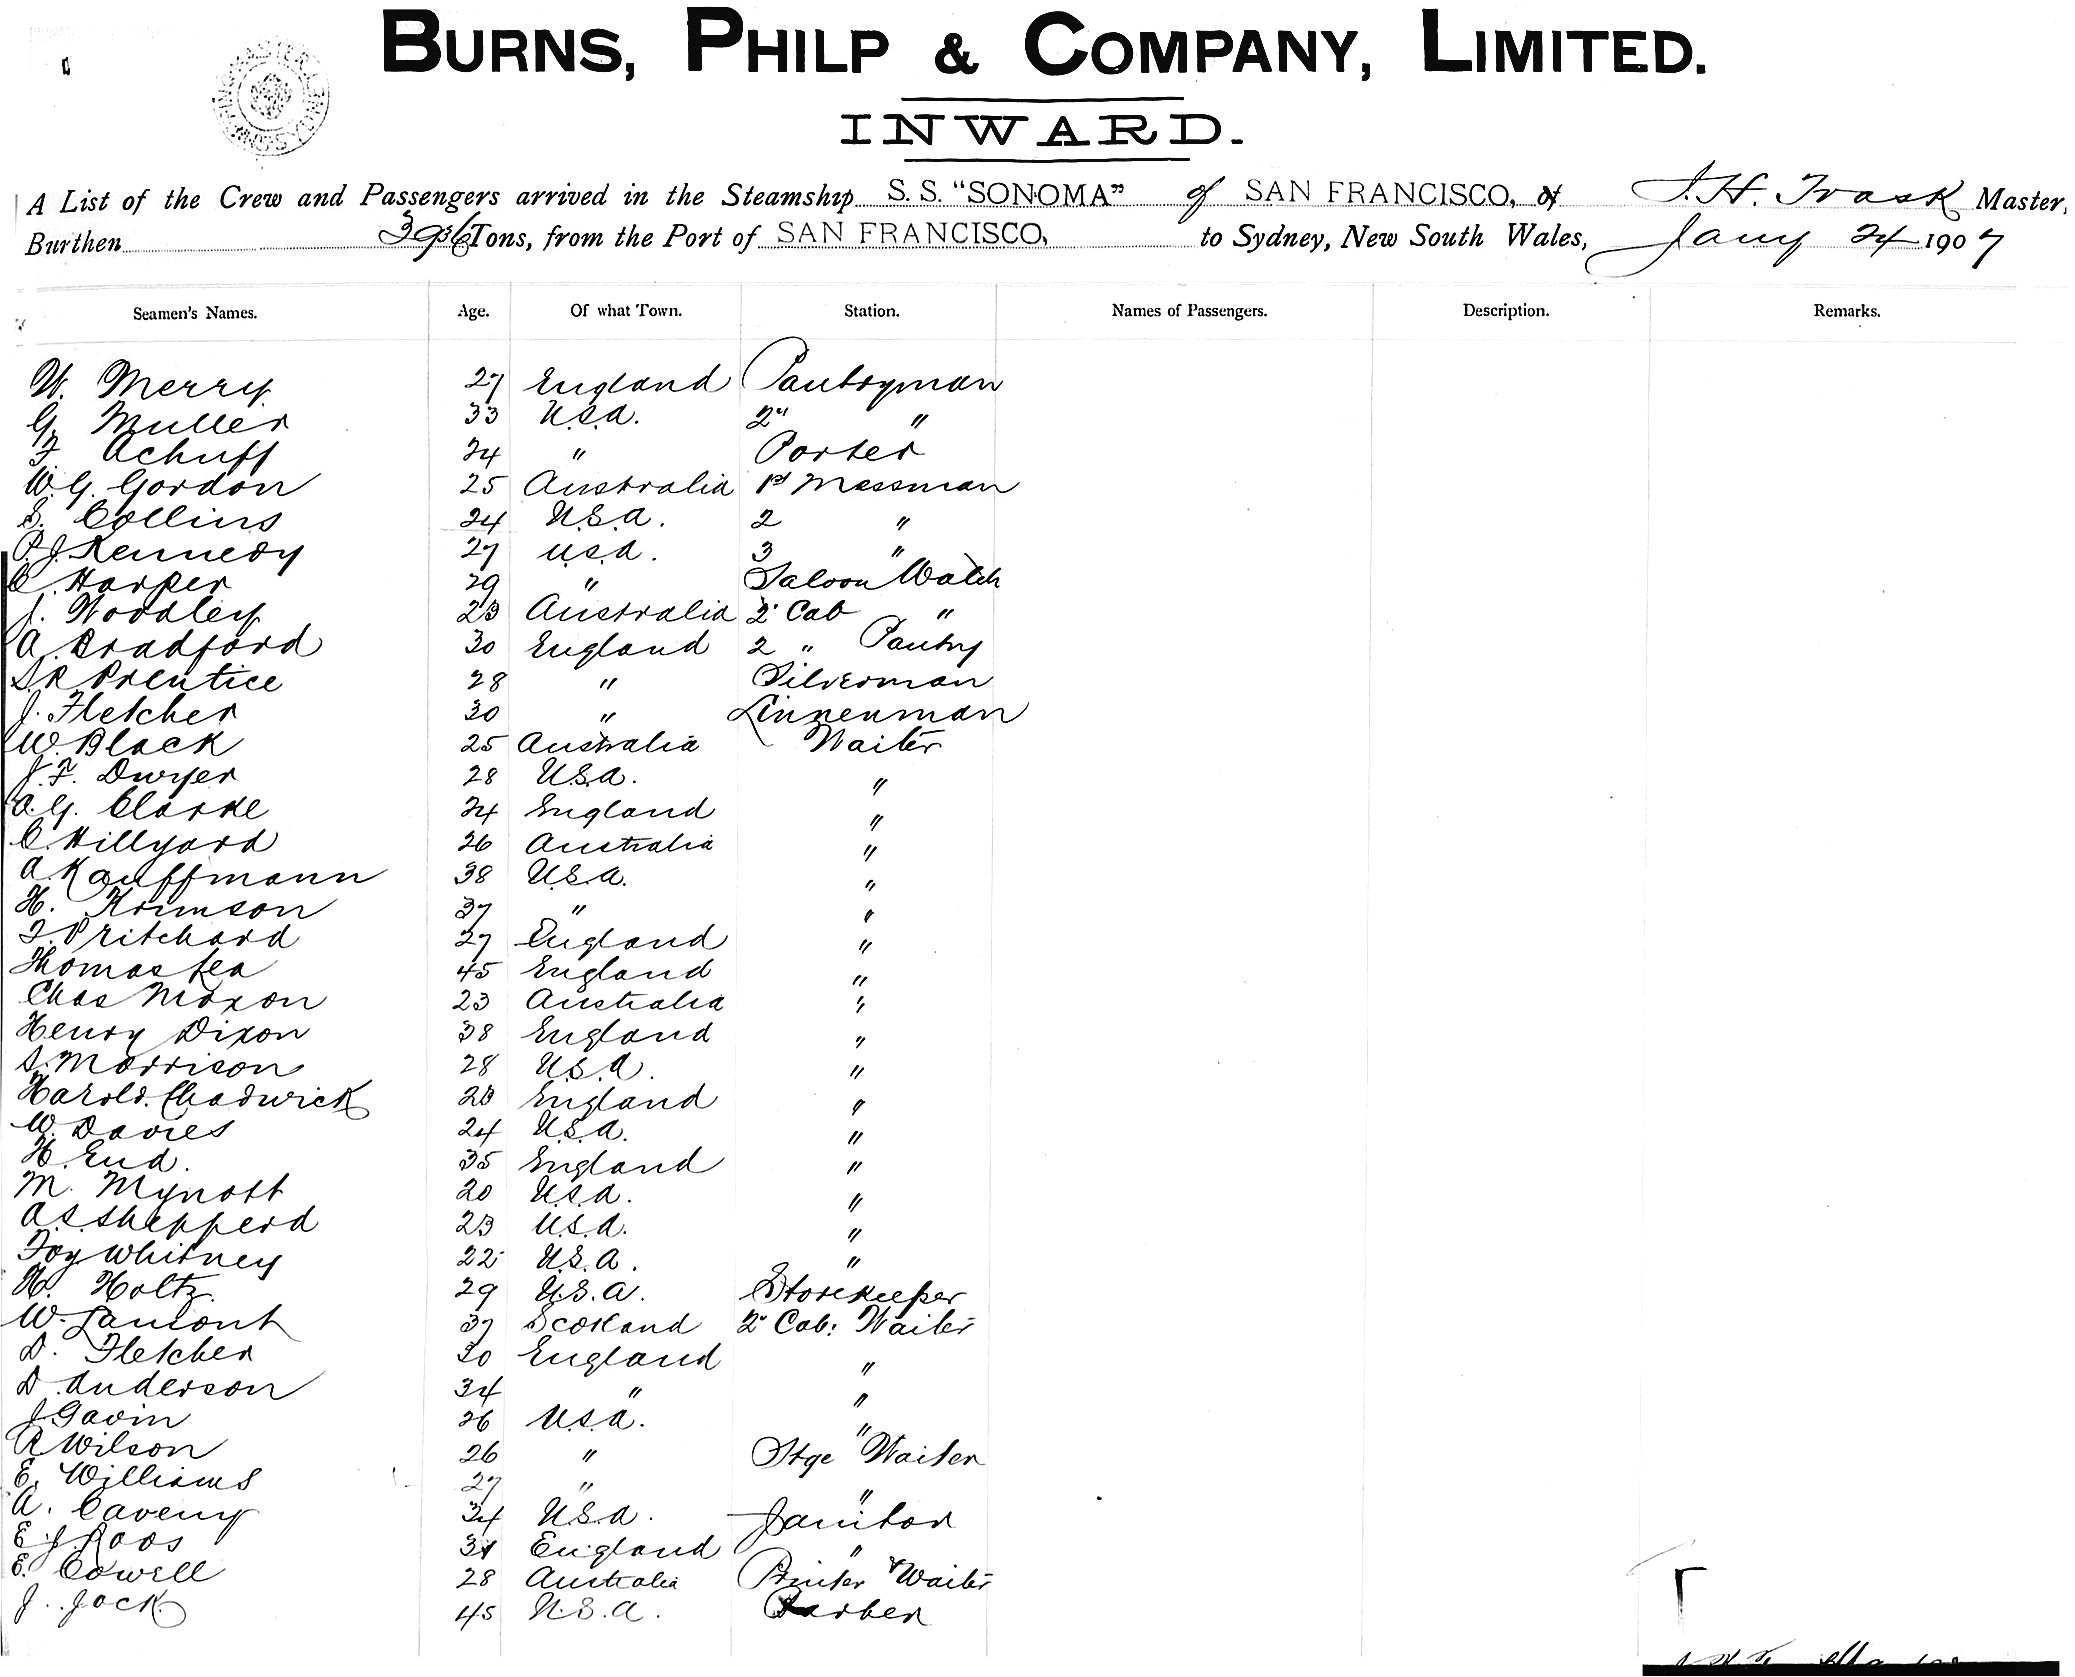 BURNS, PHILP & COMPANY, LIMITED.
INWARD.
A List of the Crew and Passengers arrived in the Steamship S. S. "SONOMA" of SAN FRANCISCO, of J. H. Trask Master,
Burthen Tons, from the Port of SAN FRANCISCO, to Sydney, New South Wales, Jany 24 1907
Seamen's Names. Age. Of what Town. Station. Names of Passengers. Description. Remarks.
W. Merry 27 England Pantryman
G. Muller 33 U.S.A. 2" "
F Achuff 24 " Porter
W.G. Gordon 25 Australia 1st Messman
S. Collins 24 U.S.A. 2 "
P.J. Kennedy 27 U.S.A. 3 "
C. Harper 29 " Saloon Watch
J. Woodley 23 Australia 2" Cab "
A. Bradford 30 England 2 " Pantry
S R Prentice 28 " Silverman
J. Fletcher 30 " Linnenman
W. Black 25 Australia Waiter
J. F. Dwyer 28 U.S.A. "
A. G. Clarke 24 England "
C. Hillyard 26 Australia "
A. Kauffmann 38 U.S.A. "
H. 37 " "
F. Pritchard 27 England "
Thomas Lea 45 England "
Chas Moxon 23 Australia "
Henry Dixon 38 England "
S. Morrison 28 U.S.A. "
Harold. Chadwick England "
W. Davies 24 U.S.A. "
H. End. 35 England "
M. Mynott 20 U.S.A. "
A.S. Shepperd 23 U.S.A. "
Foy Whitney 22 U.S.A. "
H. Holtz. 29 U.S.A. Storekeeper
W. Lamont 37 Scotland 2" Cab: Waiter
D. Fletcher 30 England "
D. Anderson 34 " "
J. Gavin 26 U.S.A. "
R Wilson 26 " Stge Waiter
E. Williams 27 " "
A. Caveny 34 U.S.A. Janitor
E J. Roos England "
E. Cowell 28 Australia Printer & Waiter
J. Jock 45 U.S.A. Barber